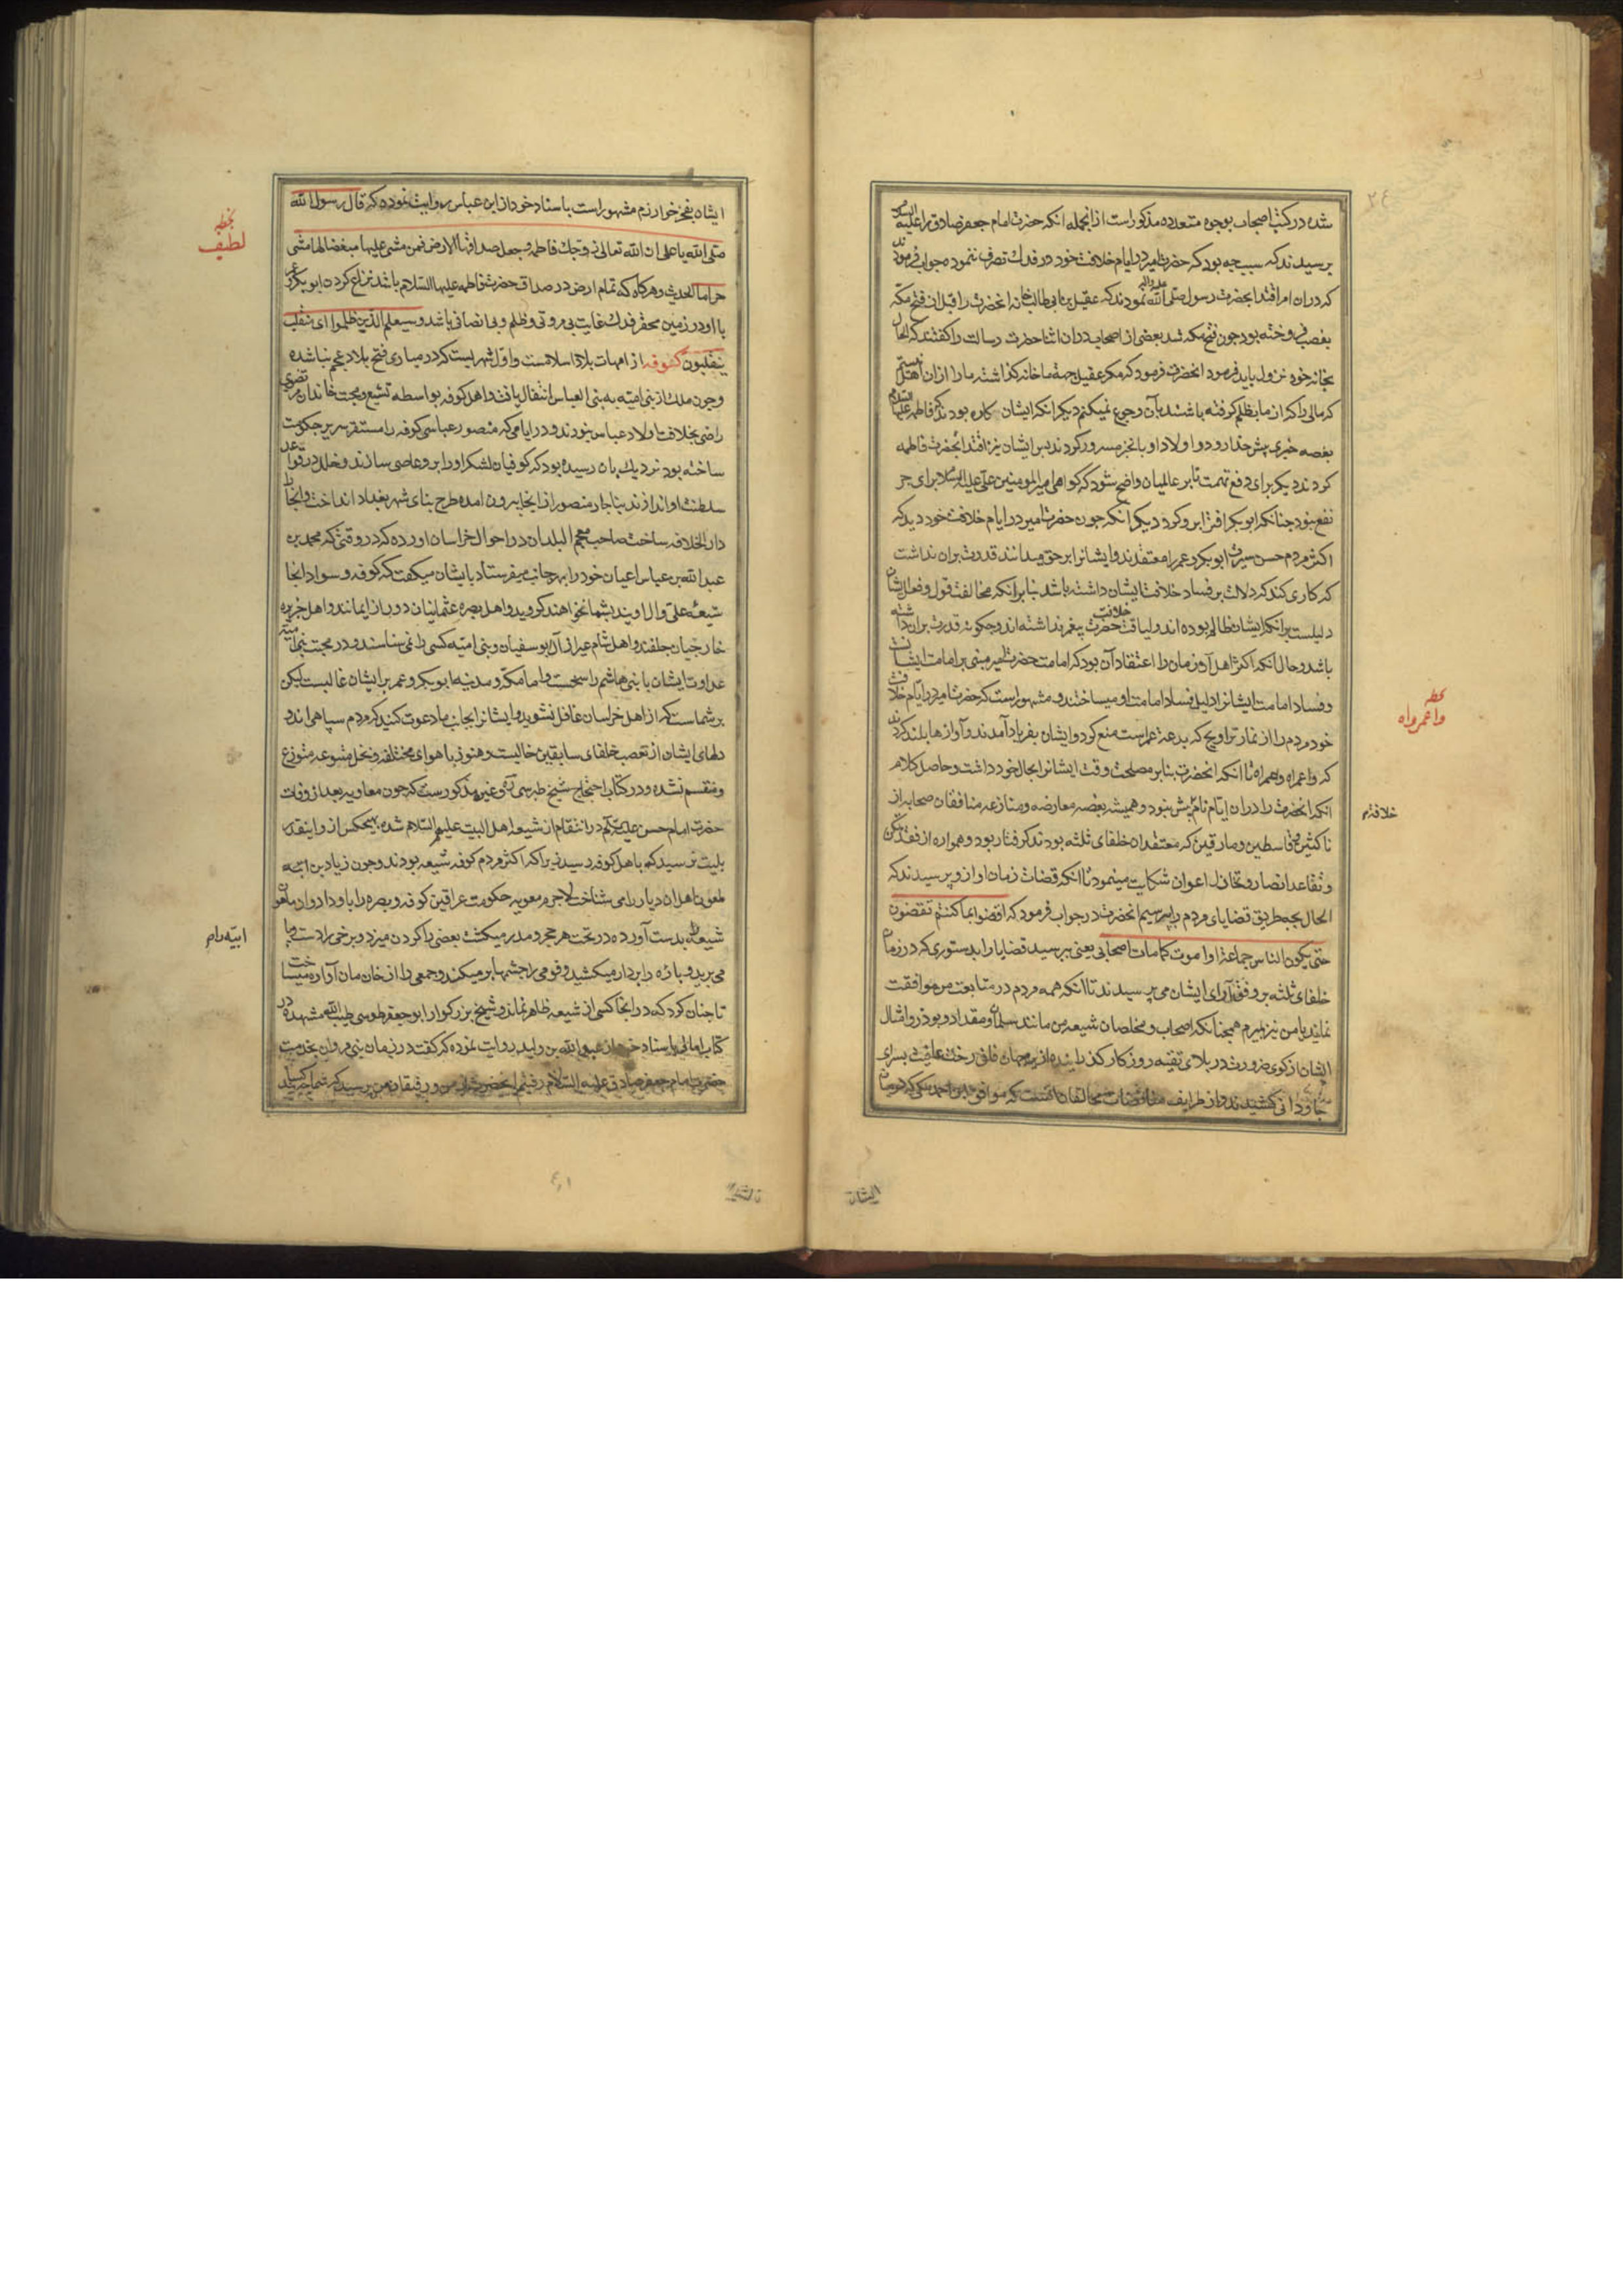 شده در کتب اصحاب بوجوه متعدده مذکور است از انجمله انکه حضرت امام جعفر صادق را علیه السلام
پرسیدند که سبب چه بود که حضرت امیر در ایام خلافت خود در فدک تصرف ننمود جواب فرمودند
که دران امر اقتدا بحضرت رسول صلی الله علیه واله نمودند که عقیل بن ابی طالب خانه انحضرت را قبل از فتح مکه
بغصب فروخته بود چون فتح مکه شد بعضی از اصحاب دران اثنا حضرت رسالت را گفتند که الحال
بخانه خود نزول باید فرمود انحضرت فرمود که مکر عقیل جهة ما خانه کذاشته ما را ازان اهل بیتیم
که مالی را که از ما بظلم کرفته باشند بآن رجوع نمیکنیم دیکر انکه ایشان کاره بودند که فاطمه علیها السلام
بغصه خیری پیش خدا رود و اولاد او بانچیز مسرور کردند پس ایشان نیز اقتدا بحضرت فاطمه
کردند دیکر برای دفع تهمت تا بر عالمیان واضح شود که کواهی امیر المومنین علی علیه السلام برای جر
نفع نبود چنانکه ابوبکر افترا برو کرد دیکر انکه چون حضرت امیر در ایام خلافت خود دید که
اکثر مردم حسن سیرت ابوبکر و عمر را معتقدند و ایشانرا بر حق میدانند قدرت بران نداشت
که کاری کند که دلالت بر فساد خلافت ایشان داشته باشد بنابر انکه مخالفت قول و فعل ایشان
دلیلست بر انکه ایشان ظالم بوده اند و لیاقت خلافت حضرت پیغمبر نداشته اند و چکونه قدرت بران داشته
باشد و حال آنکه اکثر اهل آن زمان را اعتقاد آن بود که امامت حضرت امیر مبنی بر امامت ایشانست
و فساد امامت ایشانرا دلیل فساد امامت او میساختند و مشهور است که حضرت امیر در ایام خلافت
خود مردم را از نماز تراویح که بدعة عمر است منع کرد و ایشان بفریاد آمدند و آوازها بلند کردند
که واعمراه واعمراه تا انکه انحضرت بنابر مصلحت وقت ایشانرا بحال خود داشت و حاصل کلام
انکه انحضرت را دران ایام نام بیش نبود و همیشه بغصه معارضه و منازعه منافقان صحابه از
ناکثین و قاسطین و مارقین که معتقدان خلفای ثلثه بودند کرفتار بود و همواره از فقد تمکن
و تقاعد انصار و تخاذل اعوان شکایت مینمود تا انکه قضات زمان او ازو پرسیدند که
الحال بچه طریق قضایای مردم بپرسیم انحضرت در جواب فرمود که اقضوا بما کنتم تقضون
حتی یکون الناس جماعة او اموت کما مات اصحابی یعنی بپرسید قضایا را بدستوری که در زمان
خلفای ثلثه بر وفق آرای ایشان می پرسیدند تا انکه همه مردم در متابعت من موافقت
نمایند یا من نیز بمیرم همچنانکه اصحاب و مخلصان شیعه من مانند سلمان و مقداد و بوذر و امثال
ایشان از کوی ضرورت در بلای تقیه روزکار کذرانیده از جهان فانی رخت عافیت بسرای
جاودانی کشیدند و از طرایف مناقضات مخالفان انست که موافق ابن احمد مکی که در زمان
خلافة م
بخطه
واعمرواه
ایشان
۲٤
ایشان بفخر خوارزم مشهور است باسناد خود از ابن عباس روایت نموده که قال رسول الله
صلی الله یا علی ان الله تعالی زوجک فاطمه و جعل صداقها الارض فمن مشی علیها مبغضا لها مشی
حراما الحدیث و هرکاه که تمام ارض در صداق حضرت فاطمه علیها السلام باشد نزاع کردن ابوبکر و عمر
با او در زمین محقر فدک غایت بی مروتی و ظلم و بی انصافی باشد و سیعلم الذین ظلموا ای منقلب
ینقلبون کوفه از امهات بلاد اسلامست و اول شهریست که در مبادی فتح بلاد عجم بنا شده
و چون ملک از بنی امیه به بنی العباس انتقال یافت و اهل کوفه بواسطه تشیع و محبت خاندان مرتضوی
راضی بخلافت اولاد عباس نبودند و در ایامی که منصور عباسی کوفه را مستقر سریر حکومت
ساخته بود نزدیک بان رسیده بود که کوفیان لشکر او را برو عاصی سازند و خلل در قواعد
سلطنت او اندازند بناچار منصور از انجا بیرون امده طرح بنای شهر بغداد انداخت و انجا را
دار الخلافه ساخت صاحب معجم البلدان در احوال خراسان اورده که در وقتی که محمد بن
عبد الله بن عباس اعیان خود را بهر جانب میفرستاد بایشان میکفت که کوفه و سواد انجا
شیعه علی و ال اویند بشما نخواهند کروید و اهل بصره عثمانیان دور از ایمانند و اهل جزیره
خارجیان جلفند و اهل شام غیر از آل بوسفیان و بنی امیه کسی را نمی شناسند و در محبت بنی امیه
عداوت ایشان با بنی هاشم راسخست و اما مکه و مدینه ابوبکر و عمر بر ایشان غالبست لیکن
بر شماست که از اهل خراسان غافل نشوید و ایشانرا بجانب ما دعوت کنید که مردم سپاهی اند و
دلهای ایشان از تعصب خلفای سابقین خالیست و هنوز باهوای مختلفه و نحل متنوعه متوزع
و منقسم نشده و در کتاب احتجاج شیخ طبرسی و غیره مذکورست که چون معاویه بعد از وفات
حضرت امام حسن علیه السلام در انتقام از شیعه اهل البیت علیهم السلام شد بهیچکس ازو اینقدر
بلیت نرسید که باهل کوفه رسید زیرا که اکثر مردم کوفه شیعه بودند و چون زیاد بن ابیه
لعون اهل ان دیار را می شناخت لاجرم معویه حکومت عراقین کوفه و بصره را باو داد و ان ملعون
شیعه را بدست آورده در تحت هر حجر و مدر میکشت بعضی را کردن میزد و برخی را دست و پا
می برید و پاره را بردار میکشید و قومی را چشمها بر میکند و جمعی را از خان مان آواره میساخت
تا چنان کرد که در انجا کسی از شیعه ظاهر نماند و شیخ بزرکوار ابو جعفر طوسی طیب الله مشهده در
کتاب امالی باسناد خود از عبد الله بن ولید روایت نموده که کفت در زمان بنی مروان بخدمت
حضرت امام جعفر صادق علیه السلام رفتم انحضرت از من و رفیقان من پرسید که شما چه کسانید
بخطه
لطیف
ابیه رام